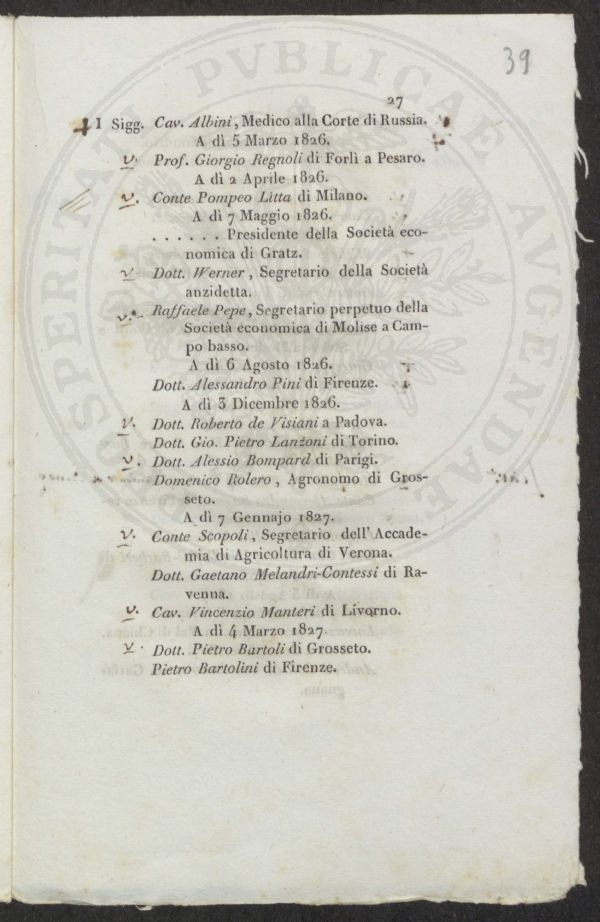 39
27
I Sigg. Cav. Albini, Medico alla Corte di Russia.
A dì 5 Marzo 1826.
v. Prof. Giorgio Regnoli di Forlì a Pesaro.
A dì 2 Aprile 1826.
v. Conte Pompeo Litta di Milano.
A dì 7 Maggio 1826.
. . . . . . Presidente della Società eco-
nomica di Gratz.
v Dott. Werner, Segretario della Società
anzidetta.
v. Raffaele Pepe, Segretario perpetuo della
Società economica di Molise a Cam-
po basso.
A dì 6 Agosto 1826.
Dott. Alessandro Pini di Firenze.
A dì 3 Dicembre 1826.
v. Dott. Roberto de Visiani a Padova.
Dott. Gio. Pietro Lanzoni di Torino.
v. Dott. Alessio Bompard di Parigi.
Domenico Rolero, Agronomo di Gros-
seto.
A dì 7 Gennajo 1827.
v. Conte Scopoli, Segretario dell' Accade-
mia di Agricoltura di Verona.
Dott. Gaetano Melandri-Contessi di Ra-
venna.
v. Cav. Vincenzio Manteri di Livorno.
A dì 4 Marzo 1827.
v. Dott. Pietro Bartoli di Grosseto.
Pietro Bartolini di Firenze.
PROSPERITATI PVBLICAE AVGENDAE